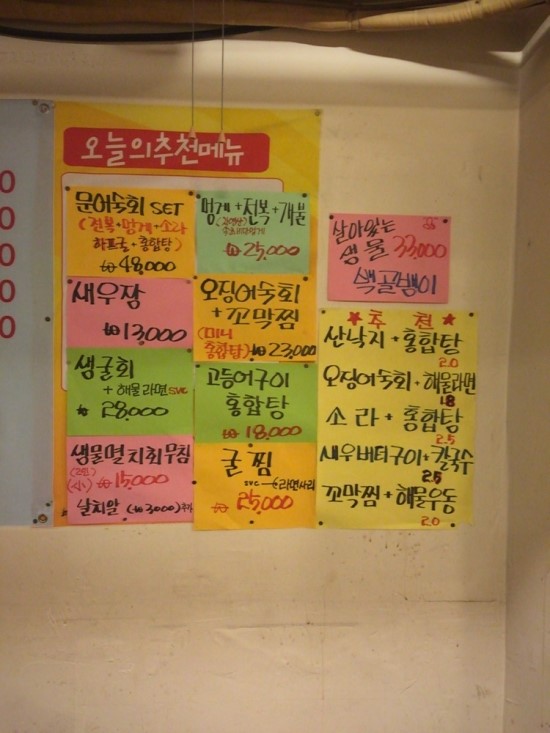 오늘의추천메뉴
문어숙회 SET
(전복+멍게+소라
하프쿨+홍합탕)
₩48,000
멍게+전복+개불
₩25,000
새우장
₩13,000
오징어숙회
+ 꼬막찜
(미니
홍합탕) ₩23,000
생굴회
+ 해물라면 SVC
₩28,000
고등어구이
홍합탕
₩18,000
생물멸치회무침
(小) ₩15,000
날치알 (₩3000)추가
굴찜
SVC → 라면사리
25,000
살아있는
생물 33,000
백골뱅이
★추 천★
산낙지+홍합탕
2.0
오징어숙회+해물라면
1.8
소라+홍합탕
2.5
새우버터구이+칼국수
2.5
꼬막찜+해물우동
2.0
0
0
0
0
0